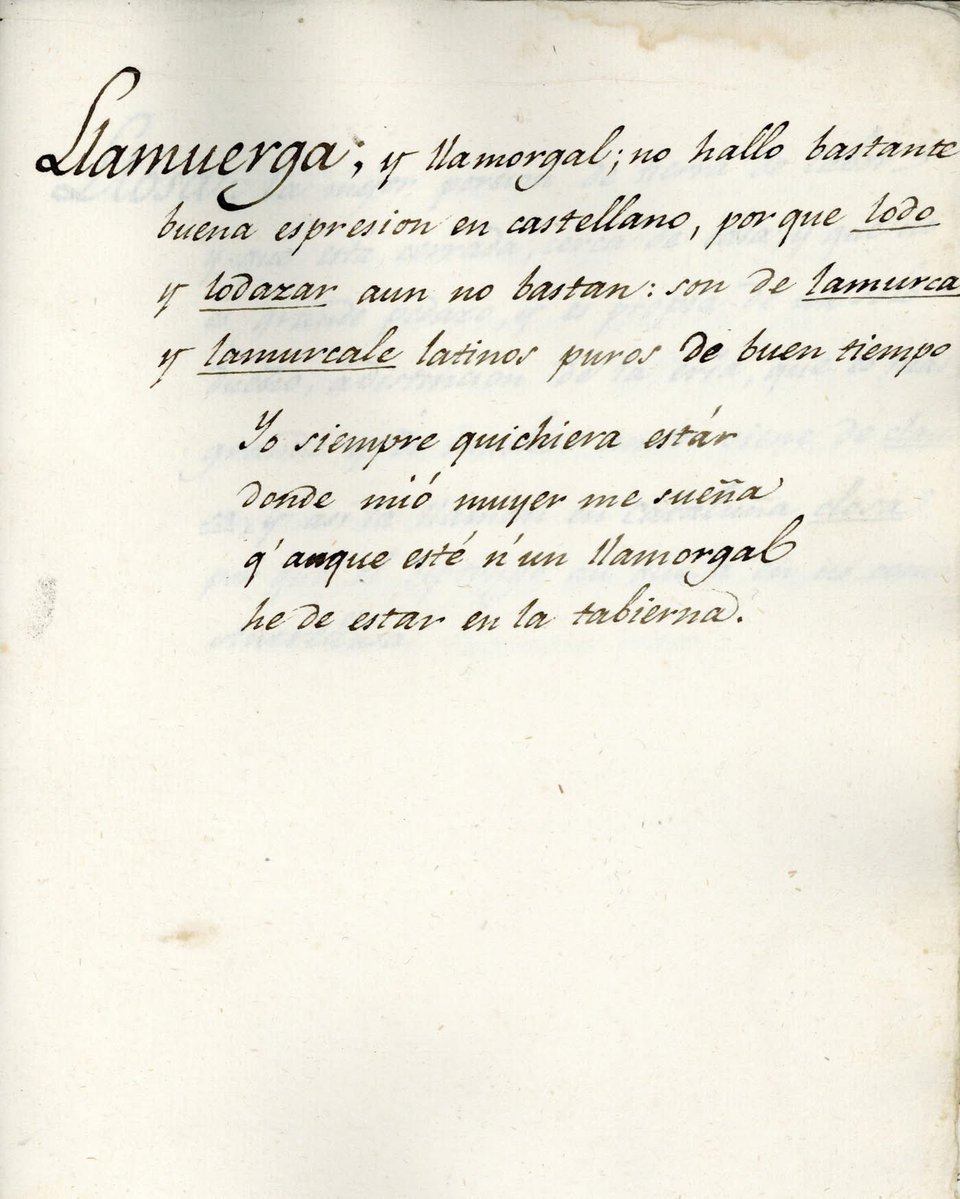 Llamuerga, y llamorgal; no hallo bastante
buena espresion en castellano, porque lodo
y lodazar aun no bastan: son de lamurca
y lamurcale latinos puros de buen tiempo
Yo siempre quichiera estár
donde mió muyer me sueña
q' anque esté n'un llamorgal
he de estar en la tabierna.